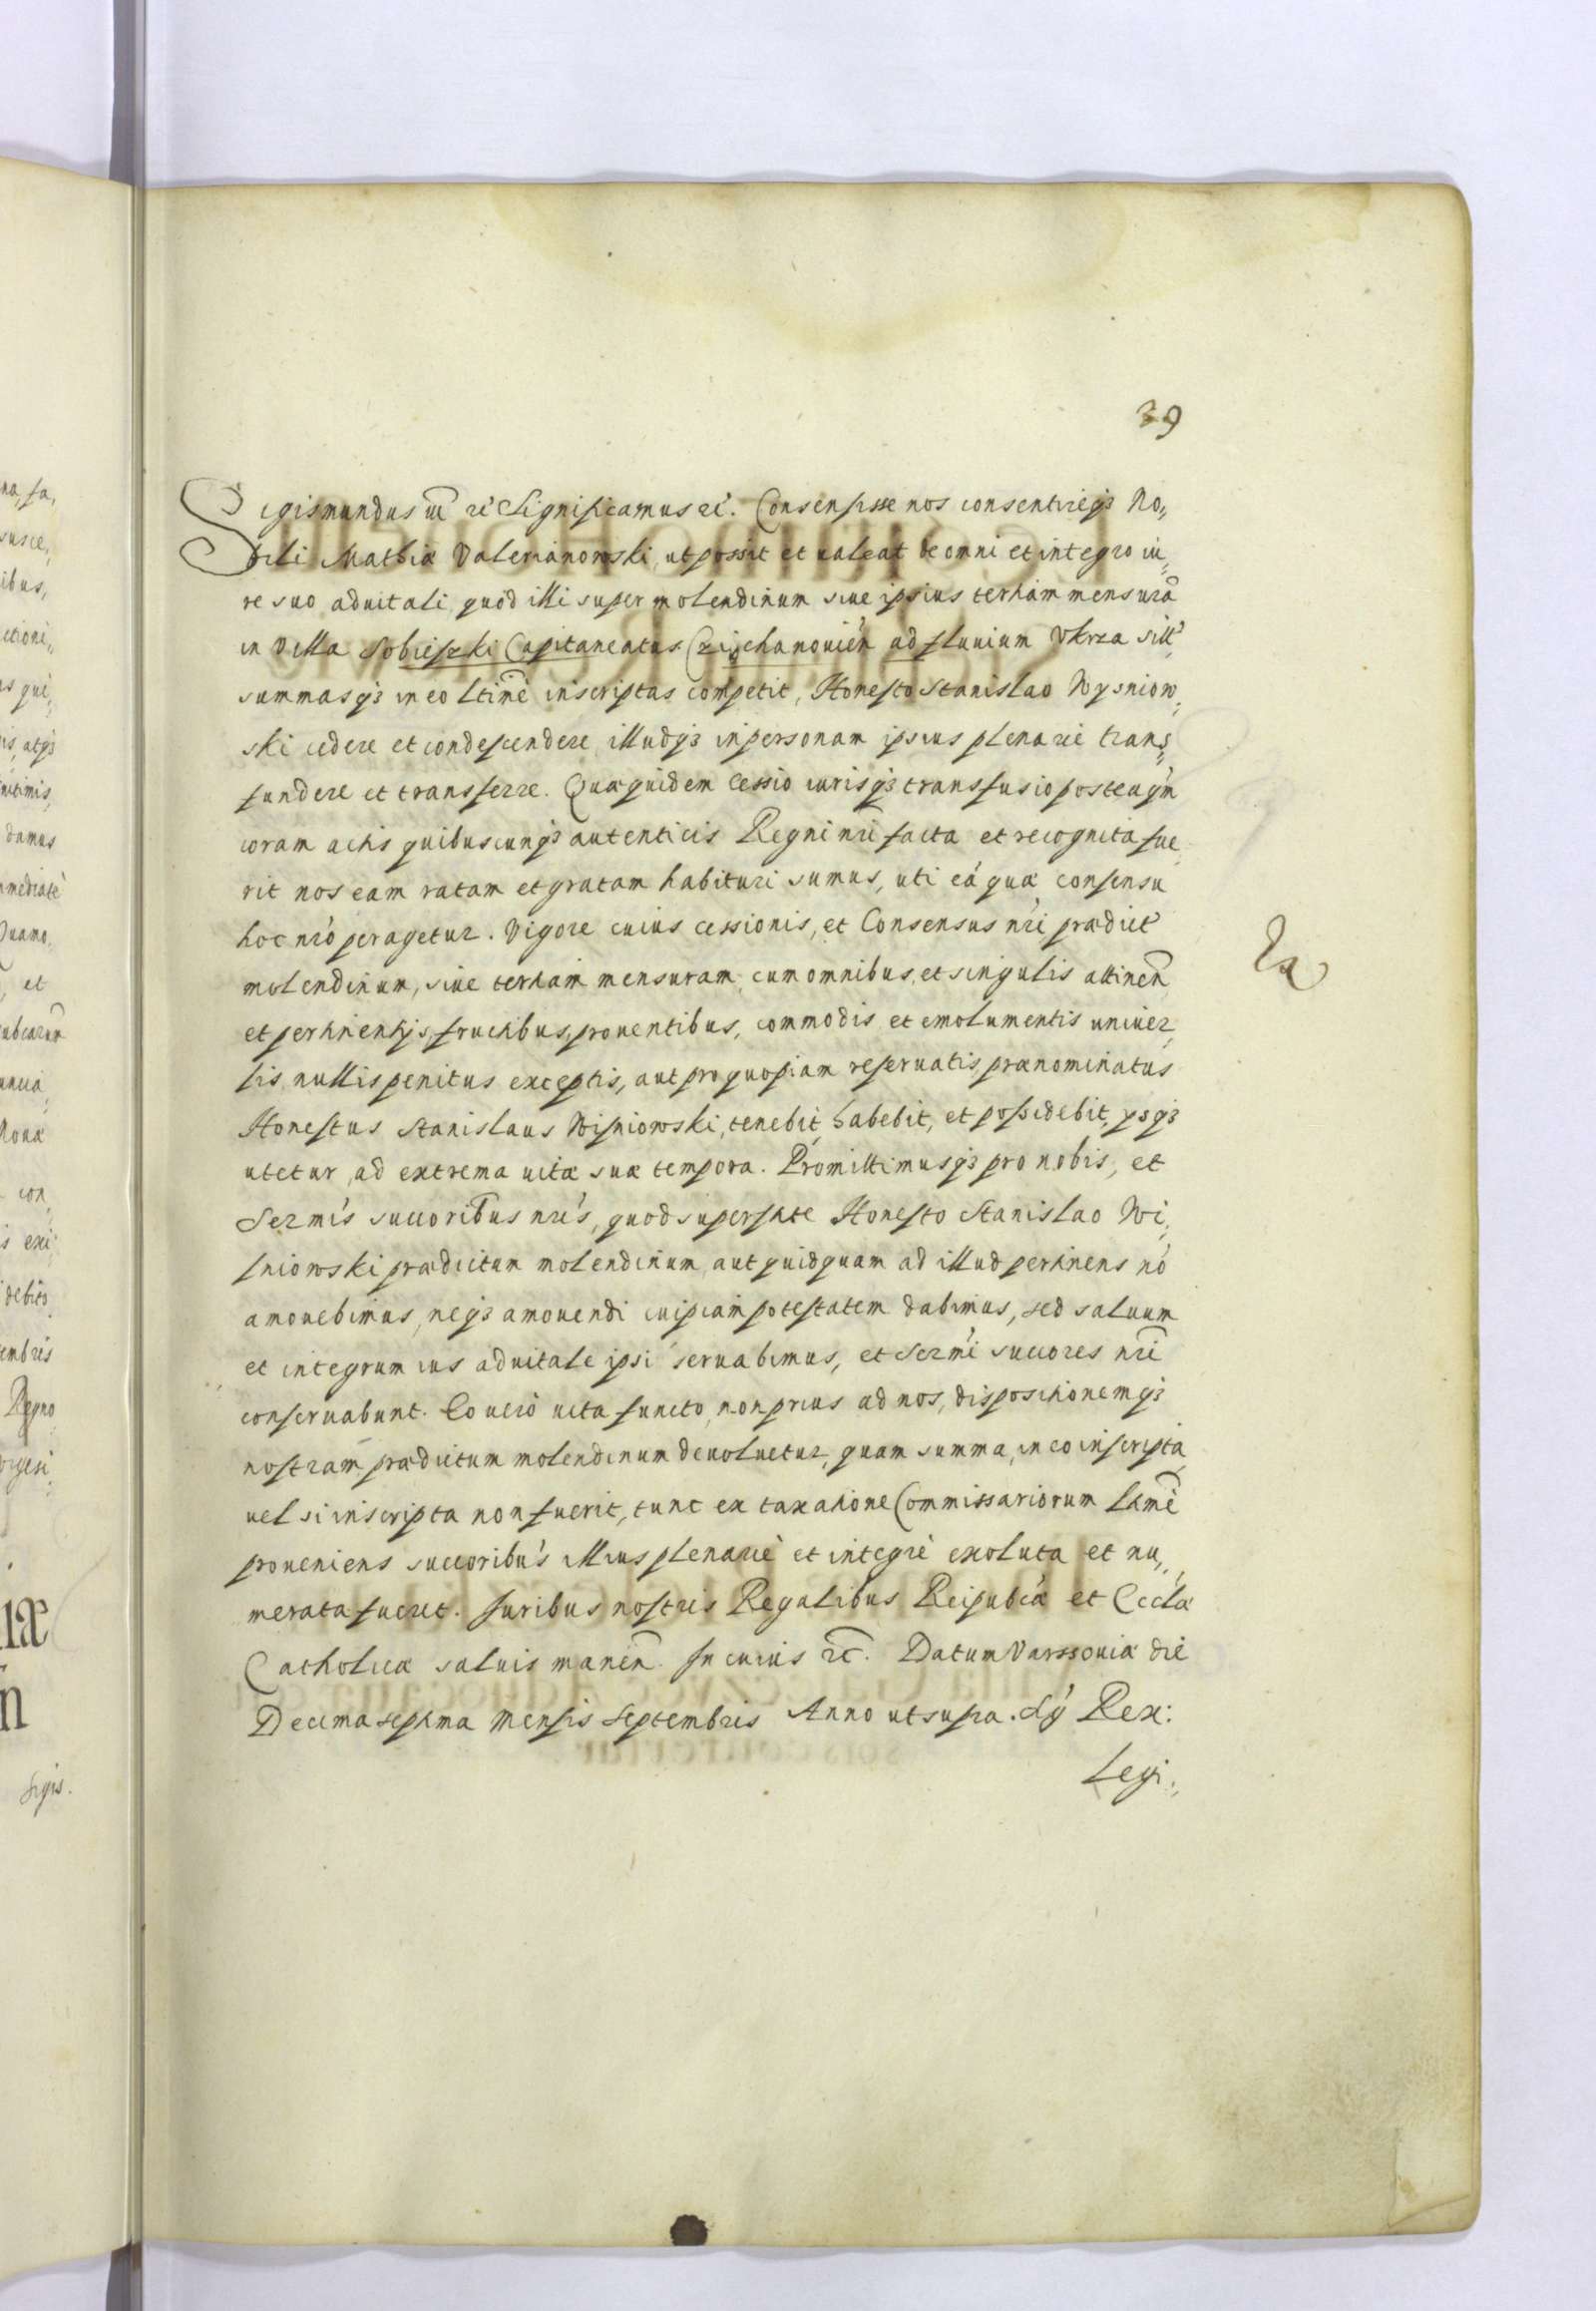 39
Sigismundus III etc̃ Significamus etc̃. Consensisse nos consentireqз No„
bili Mathiæ Valerianowski, ut possit et ualeat de omni et integro iu„
re suo aduitali quod illi super molendinum siue ipsius tertiam mensurã
in Villa Sobieszki Capitaneatus Cziechanouień ad fluuium Vkrza sitt̃
summasqз in eo ltimẽ inscriptas competit, Honesto Stanislao Wysniow„
ski cedere et condescendere illudqз in personam ipsius plenarie trans„
fundere et transferre. Quæ quidem Cessio iurisqз transfusio posteaqm̃
coram actis quibuscunqз autenticis Regni nrĩ facta et recognita fue„
rit nos eam ratam et gratam habituri sumus, uti eá quæ consensu
hoc nró peragetur. Vigore cuius cessionis, et Consensus nrĩ prædict̃
molendinum, siue tertiam mensuram cum omnibus et singulis attineñ
et pertinentijs, fructibus, prouentibus, commodis et emolumentis uniuer„
sis nullis penitus exceptis, aut pro quopiam reseruatis prænominatus
Honestus Stanislaus Wisniowski, tenebit, habebit, et possidebit, ysqз
utetur, ad extrema uitæ suæ tempora. Promittimusqз pro nobis, et
Sermis̃ succoribus̃ nrĩs, quod superstite Honesto Stanislao Wi„
sniowski prædictum molendinum aut quidquam ad illud pertinens nõ
amouebimus, neqз amouendi cuipiam potestatem dabimus, sed saluum
et integrum ius aduitale ipsi seruabimus, et Sermĩ succores nrĩ
conseruabunt. Eo uerò uita functo, non prius ad nos, dispositionemqз
nostram prædictum molendinum deuoluetur, quam summa, in eo inscripta
uel si inscripta non fuerit, tunc ex taxatione Commissariorum ltimẽ
proueniens succoribus̃ illius plenariè et integrè exoluta et nu„
merata fuerit. Juribus nostris Regalibus Reipubcæ̃ et Ecclæ̃
Catholicæ saluis maneñ. In cuius etc̃. Datum Varssouiæ die
Decima septima Mensis Septembris Anno ut supra. Sg̃ Rex:
Legi„